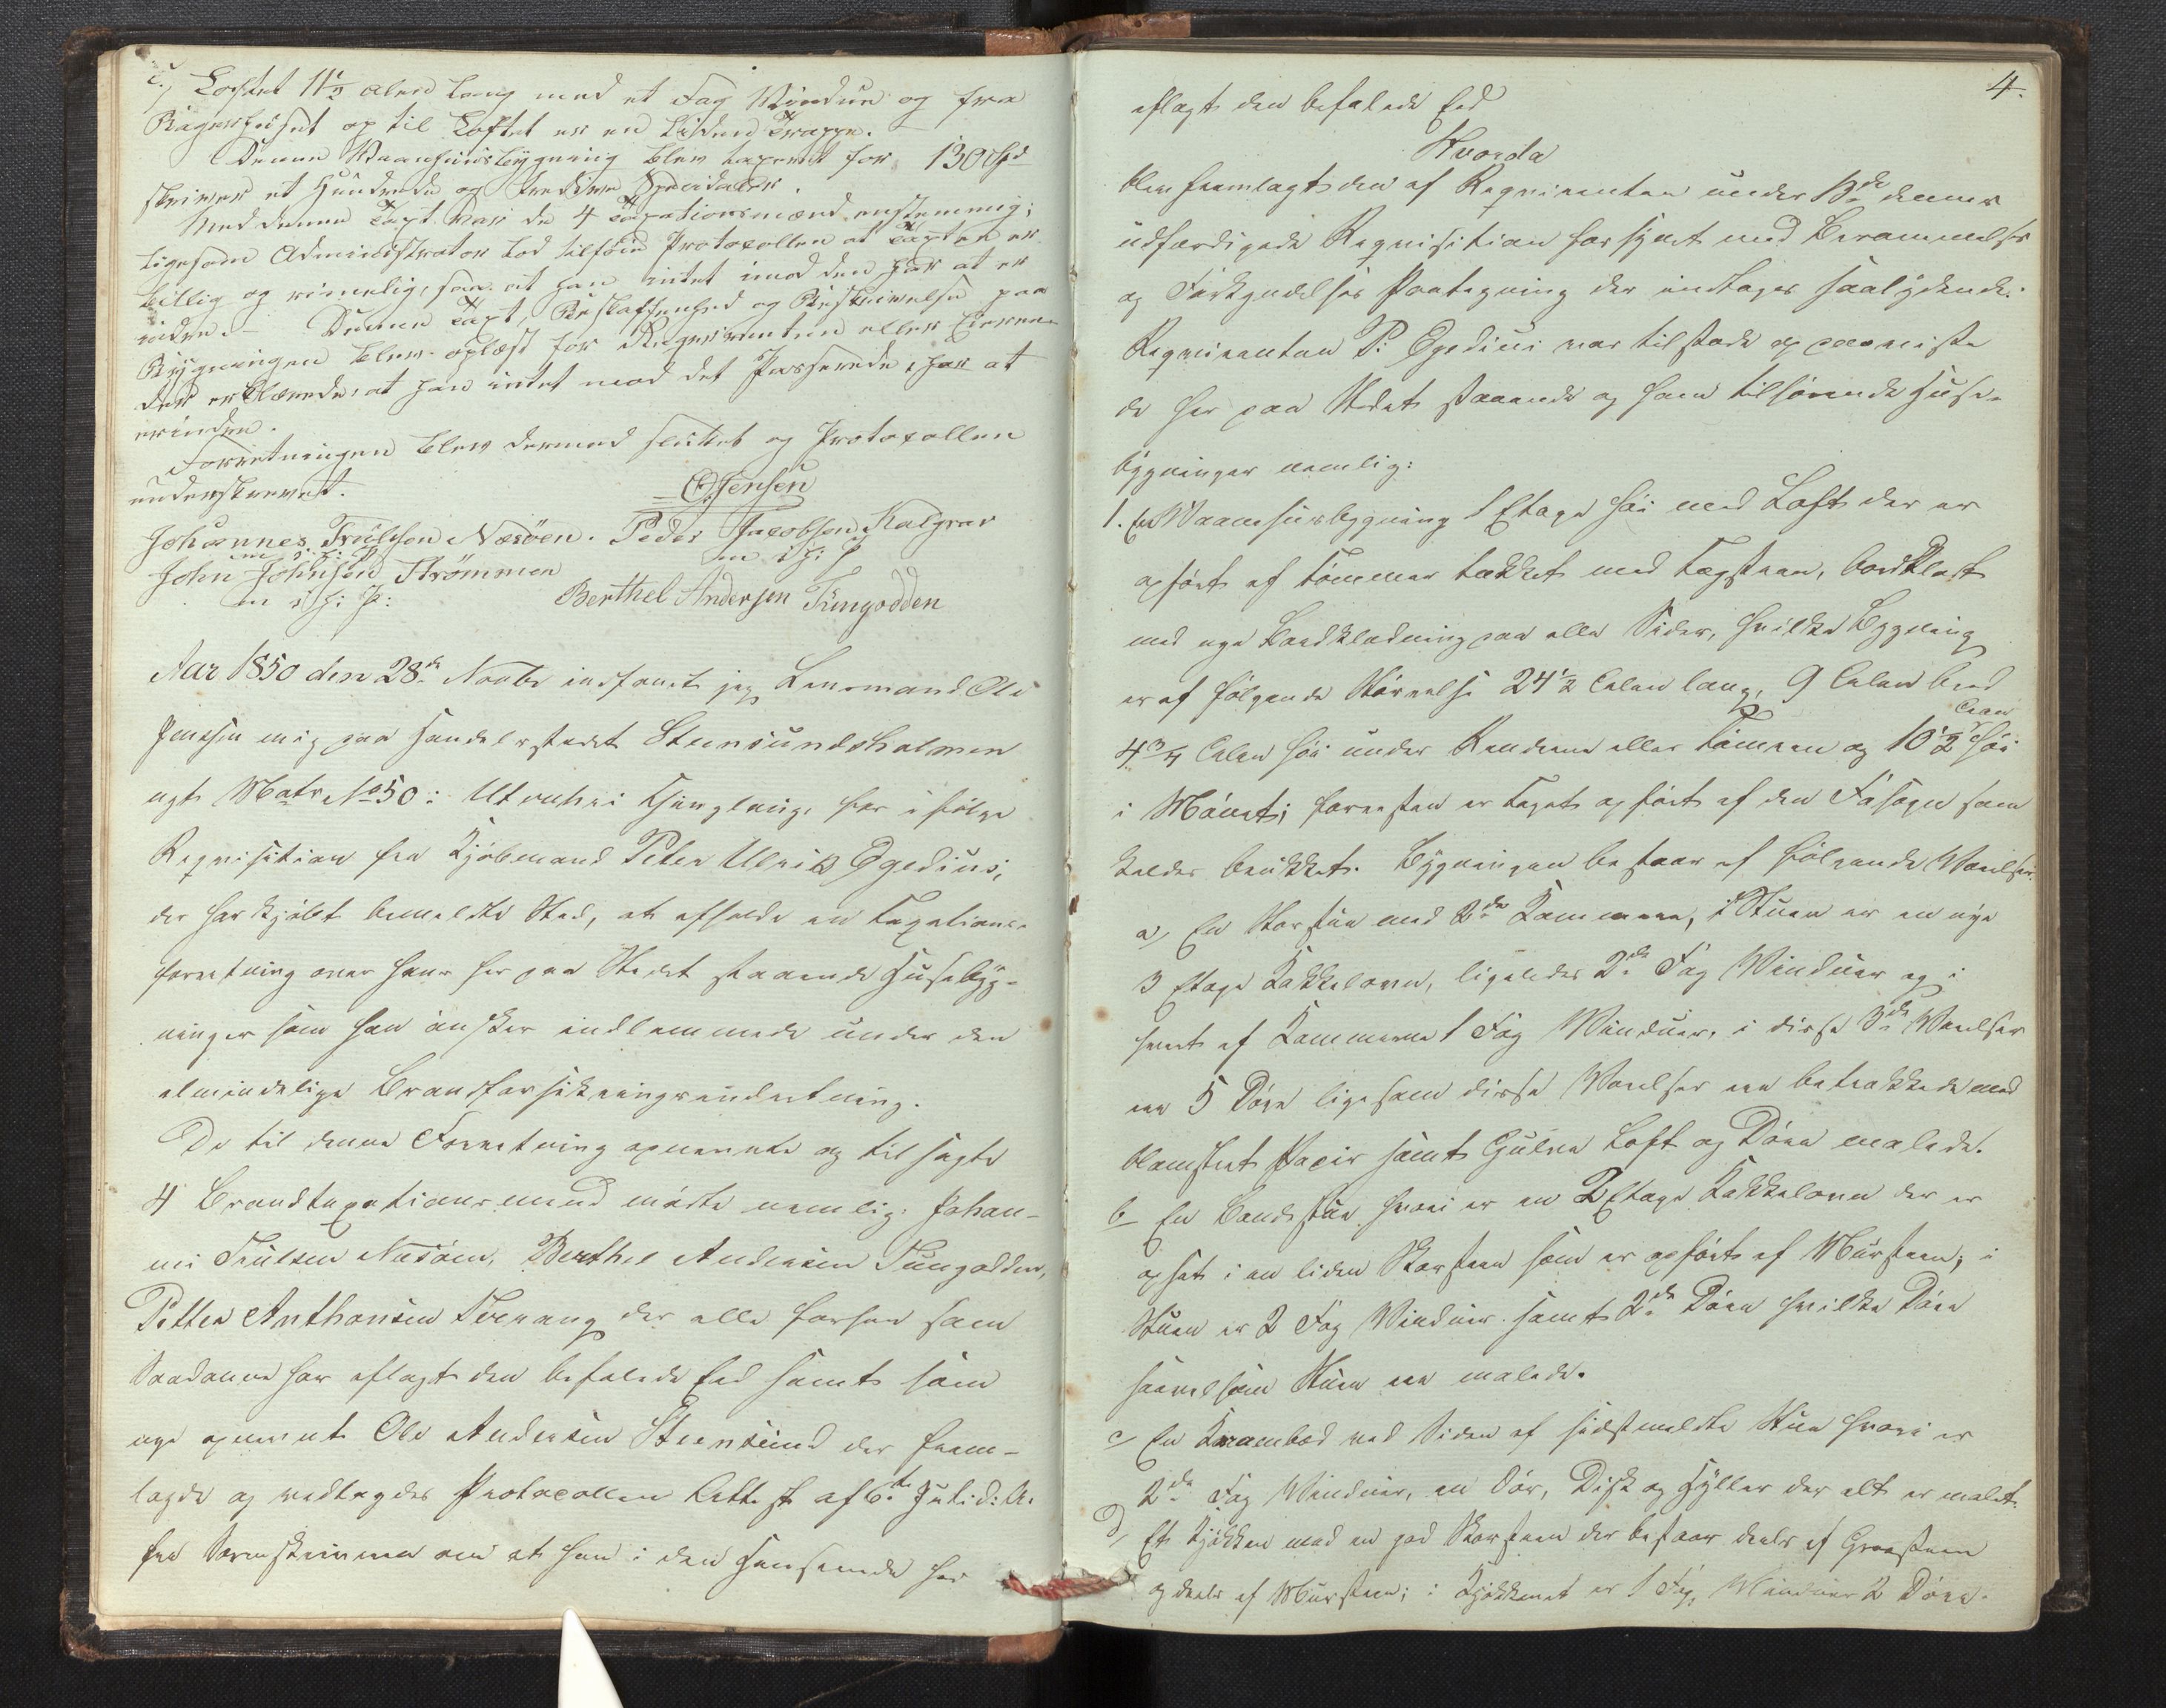 c., Loftet 11½ Alen lang med et Fag Vindue og fra
Bagerhuset op til Loftet er en liden Trappe.
Denne Vaaningsbygning blev taxeret for 130 Spd
skriver et Hundrede og tredive Speciedaler.
Med denne Taxt var de 4 Taxationsmænd enstemmig;
ligesom Administrator lod tilføie Protocollen at Taxten er
billig og rimelig, saa at han intet imod den har at er
indre. Denne Taxt, Beskaffenhed og Beskrivelse paa
Bygningen blev oplæst for Reqvirenten eller Eieren
der erklærede, at han intet mod det Passerede har at
erindre.
Forretningen blev dermed sluttet og Protocollen
underskrevet.
O. Jensen
Johannes Trulssen Næsøen. Peder Jacobsen Kalgrav
m i h: P m i h: P
John Johnsen Strømmen
m i h: P: Berthel Andersen Tungodden
Aar 1850 den 28de Novbr indfandt jeg Lensmand Ole
Jensen mig paa Handelsstedet Steensundsholmen
ugt Matr No 50 i Utvahr Thinglaug, for i følge
Reqvisition fra Kjøbmand Peter Ulrik Egedius,
der har kjøbt bemeldte Sted, at afholde en Taxations-
forretning over hans her paa Stedet staaende Huusebyg-
ninger som han ønsker indlemmede under den
almindelige Brandforsikringsindretning.
De til denne Forretning opnævnte og tilsagte
4 Brandtaxationsmænd mødte nemlig: Johan-
nes Trulsen Næsøen, Berthel Andersen Tungodden,
Petter Anthonsen der alle forhen som
Saadanne har aflagt den befalede Eed samt som
nye opnævnt Ole Andersen Steensund der frem-
lagde og vedtages Protocollen Attest af 6te Juli d: A:
fra Sorenskriveren om at han i den Henseende har
4.
aflagt den befalede Eed
Hvorda
blev fremlagt den af Reqvirenten under 13de dennes
udfærdigede Reqvisition forsynet med Berammelses
og Forkyndelses Paategning der indtages saalydende.
Reqvirenten P: Egedius var tilstæde og paaviste
de her paa Stedet staaende og ham tilhørende Huse-
bygninger nemlig:
1. En Vaanehuusbygning 1 Etage høi med Loft der er
opført af Tømmer tækket med Tagsteen, bordklædt
med nye Bordklædning paa alle Sider, hvilken Bygning
er af følgende Størrelse 24½ Alen lang, 9 Alen bred
4¾ Alen høi under Rændene eller Tømren og 10½ Alen høi
i Mønet; forresten er Taget opført af den Fasøn som
kaldes brukket. Bygningen bestaar af følgende Værelser.
a, En Storstue med 2de Kammere, i Stuen er en nye
3 Etages Kakkelovn, ligeledes 2de Fag Vinduer og i
hvert af Kammerne 1 Fag Vinduer, i disse 3de Værelser
er 5 Døre ligesom disse Værelser ere betrækkede med
blomstret Papir samt Gulve Loft og Døre malede.
b En Bondestue hvori er en 2 Etages Kakkelovn der er
opsat i en liden Skorsteen som er opført af Mursteen; i
Stuen er 2 Fag Vinduer samt 2de Døre hvilke Døre
saavelsom Stuen ere malede.
c, En Krambod ved Siden af sidstmeldte Stue hvori er
2de Fag Vinduer, en Dør, Disk og Hyller der alt er malet.
D, Et Kjøkken med en god Skorsteen der bestaar deels af Graasteen
og deels af Mursteen; i Kjøkkenet er 1 Fag Vinduer 2 Døre.